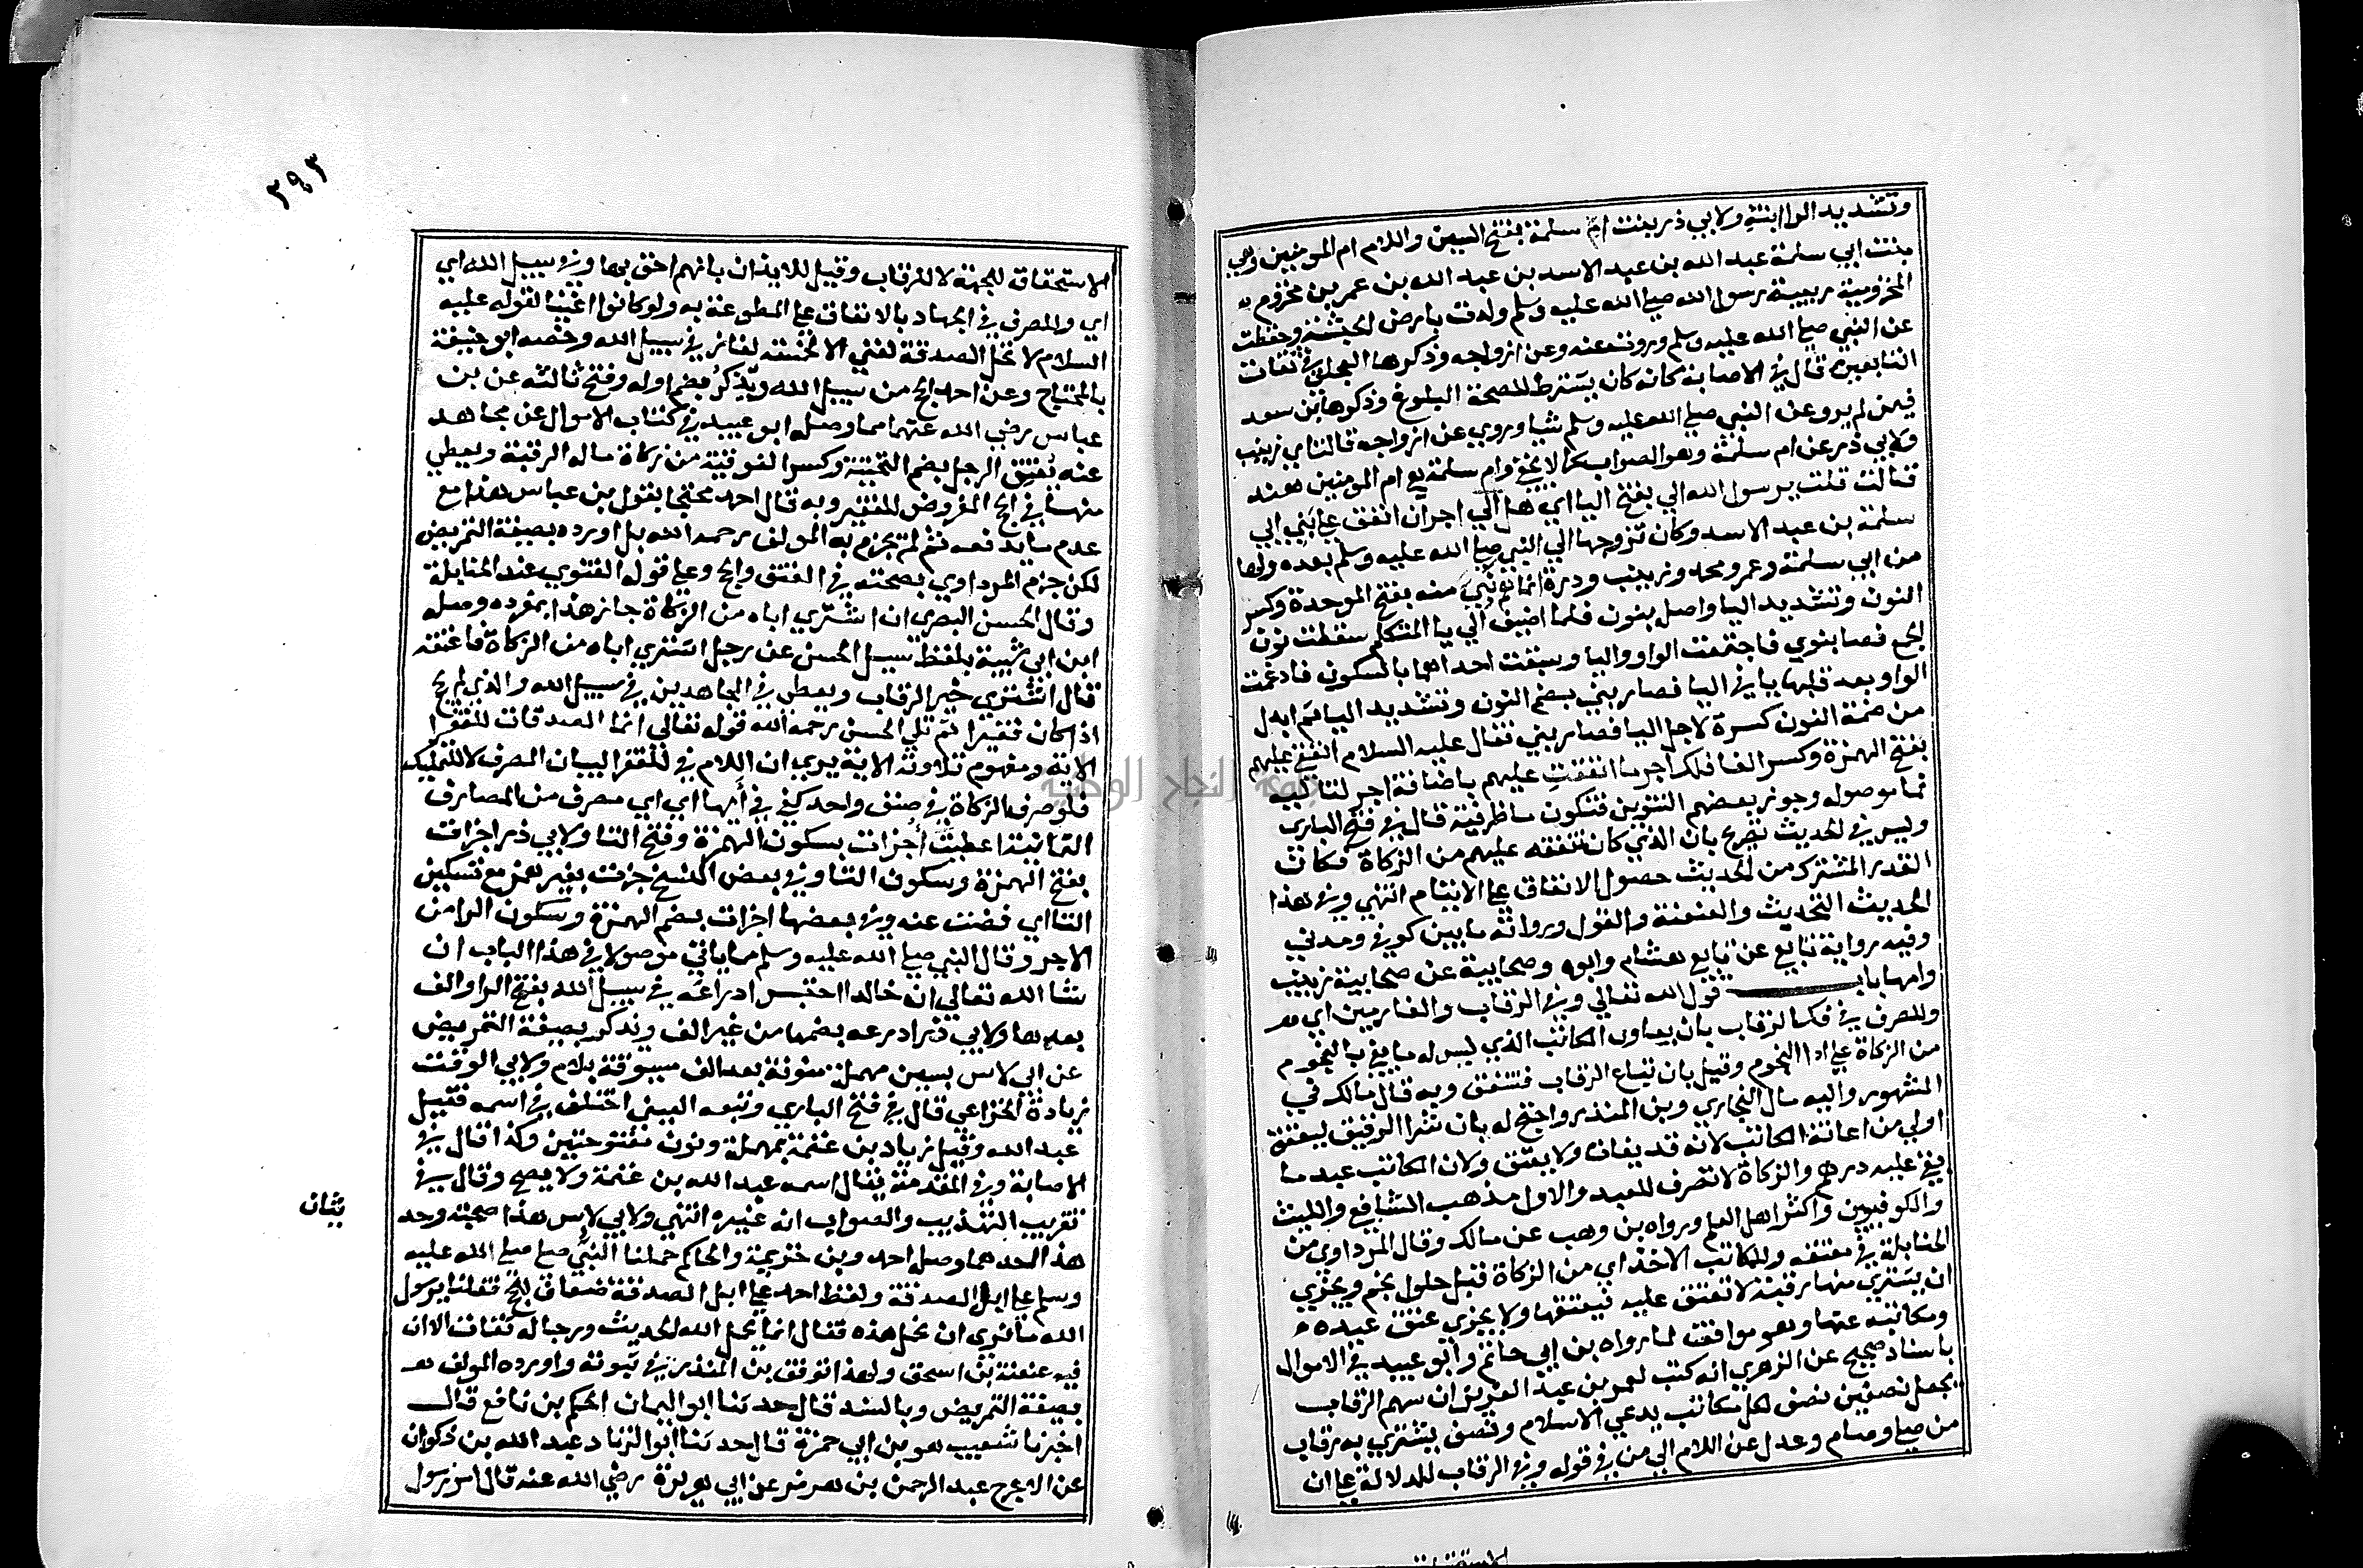 وتشديد الرا ابنة ولابي ذر بنت ام سلمة بفتح السين واللام ام المومنين وهي
بنت ابي سلمة عبد الله بن عبد الاسد بن عبد الله بن عمر بن مخزوم
المخزومية ربيبة رسول الله صلي الله عليه وسلم ولدت بارض الحبشة وحفظت
عن النبي صلي الله عليه وسلم وروت عنه وعن ازواجه وذكرها العجلي في ثقات
التابعين قال في الاصابة كانه كان يشترط للصحة البلوغ وذكرها بن سعد
فيمن لم يرو عن النبي صلي الله عليه وسلم شيا وروي عن ازواجه قالت اي زينب
ولابي ذر عن ام سلمة وهو الصواب كما لا يخفي وام سلمة هي ام المومنين هند
قالت قلت يرسول الله الي بفتح اليا اي هل الي اجر ان انفق علي بني ابي
سلمة بن عبد الاسد وكان تزوجها الي النبي صلي الله عليه وسلم بعده ولها
من ابي سلمة وعمرو محمد وزينب ودرة انما هم بني منه بفتح الموحدة وكسر
النون وتشديد اليا واصل بنون فلما اضيف الي يا المتكلم سقطت نون
الجمع فصا بنوي فاجتمعت الواو واليا وسبقت احداهما بالسكون فادغمت
الواو بعد قلبها يا في اليا فصار بني بضم النون وتشديد اليا ثم ابدل
من ضمة النون كسرة لاجل اليا فصار بني فقال عليه السلام انفقي عليهم
بفتح الهمزة وكسر الفا فلك اجر ما انفقت عليهم باضافة اجر لتاليه
فما موصوله وجوز بعضهم التنوين فتكون ما ظرفية قال في فتح الباري
وليس في الحديث تصريح بان الذي كان تنفقه عليهم من الزكاة فكان
القدر المشترك من الحديث حصول الانفاق علي الايتام انتهي وفي هذا
الحديث التحديث والعنعنة والقول ورواته ما بين كوفي ومدني
وفيه رواية تابع عن تابع هشام وابوه وصحابية عن صحابية زينب
وامها باب قول الله تعالي وفي الرقاب والغارمين اي هو
وللصرف في فك الرقاب بان يعاون المكاتب الذي ليس له ما يفي بالنجوم
من الزكاة علي ادا النجوم وقيل بان تباع الرقاب فتعتق وبه قال مالك في
المشهور واليه مال البخاري وبن المنذر واحتج له بان شرا الرقيق ليعتق
اولي من اعانة المكاتب لانه قد يعان ولا يعتق ولان المكاتب عبد ما
بقي عليه درهم والزكاة لا تصرف للعبد والاول مذهب الشافعي والليث
والكوفيين واكثر اهل العلم ورواه بن وهب عن مالك وقال المرداوي من
الحنابلة في مقنعه وللمكاتب الاخذ اي من الزكاة قبل حلول نجم ويجزي
ان يشتري منها رقبة لا تعتق عليه فيعتقها ولا يجزي عتق عبده
ومكاتبه عنها وهو موافقت لما رواه بن ابي حاتم وابو عبيد في الاموال
باسناد صحيح عن الزهري انه كتب لعمر بن عبد العزيز ان سهم الرقاب
يجعل نصفين نصف لكل مكاتب يدعي الاسلام ونصف يشتري به رقاب
من صلي وصام وعدل عن اللام الي من في قوله وفي الرقاب للدلالة علي ان
٣٩٣
الاستحقاق للجهة لا للرقاب وقيل للايذان بانهم احق بها وفي سبيل الله اي
اي والصرف في الجهاد بالانفاق علي المطوعة به ولو كانوا اغنيا لقوله عليه
السلام لا تحل الصدقة لغني الا لخمسة لغاز في سبيل الله وخصه ابو حنيفة
بالمحتاج وعن احمد الحج من سبيل الله ويذكر بضم اوله وفتح ثالثه عن بن
عباس رضي الله عنهما مما وصله ابو عبيد في كتاب الاموال عن مجاهد
عنه يعتق الرجل بضم التحتية وكسر الفوقية من زكاة ماله الرقبة ويعطي
منها في الحج المفروض للفقير وبه قال احمد محتجا بقول بن عباس هذا مع
عدم ما يدفعه ثم لم يجزم به المولف رحمه الله بل اورده بصيغة التمريض
لكن جزم المرداوي بصحته في العتق والحج وعلي قوله الفتوي عند الحنابلة
وقال الحسن البصري ان اشتري اباه من الزكاة جاز هذا بمفرده وصله
ابن ابي شيبة بلفظ سيل الحسن عن رجل اشتري اباه من الزكاة فاعتقه
قال اشتري خير الرقاب ويعطي في المجاهدين في سبيل الله والذي لم يحج
اذا كان فقيرا ثم تلي الحسن رحمه الله قوله تعالي انما الصدقات للفقرا
الاية ومفهوم تلاوته الاية يري ان اللام في للفقرا لبيان المصرف لا للتمليك
فلو صرف الزكاة في صنف واحد كفي في ايها اي اي مصرف من المصارف
الثمانية اعطيت اجزات بسكون الهمزة وفتح التا ولابي ذر اجزات
بفتح الهمزة وسكون التا وفي بعض النسخ جزت بغير همز مع تسكين
التا اي قضت عنه وفي بعضها اجرت بضم الهمزة وسكون الرا من
الاجر وقال النبي صلي الله عليه وسلم مما ياتي موصولا في هذا الباب ان
شا الله تعالي ان خالدا احتبس ادراعه في سبيل الله بفتح الرا والف
بعدها ولابي ذر ادرعه بضمها من غير الف ويذكر بصيغة التمريض
عن ابي لاس بسين مهملة منونة بعد الف مسبوقة بلام ولابي الوقت
زيادة الخزاعي قال في فتح الباري وتبعه العيني اختلف في اسمه فقيل
عبد الله وقيل زياد بن عنمة بمهملة ونون مفتوحتين وكذا قال في
الاصابة وفي المقدمة يقال اسمه عبد الله بن عنمة ولا يصح وقال في
تقريب التهذيب والصواب انه غيره انتهي ولابي لاس هذا صحبة وحد
يثان
هذا احدهما وصله احمد وبن خزيمة والحاكم حملنا النبي صلي صلي الله عليه
وسلم علي ابل الصدقة ولفظ احمد علي ابل الصدقة ضعاف للحج فقلنا يرسول
الله ما نري ان تحمل هذه فقال انما يحمل الله الحديث ورجاله ثقات الا ان
فيه عنعنة بن اسحق ولهذا توقف بن المنذر في ثبوته واورده المولف
بصيغة التمريض وبالسند قال حدثنا ابو اليمان الحكم بن نافع قال
اخبرنا شعيب هو بن ابي حمزة قال حدثنا ابو الزناد عبد الله بن ذكوان
عن الاعرج عبد الرحمن بن هرمز عن ابي هريرة رضي الله عنه قال امر رسول
جامعة النجاح الوطنية